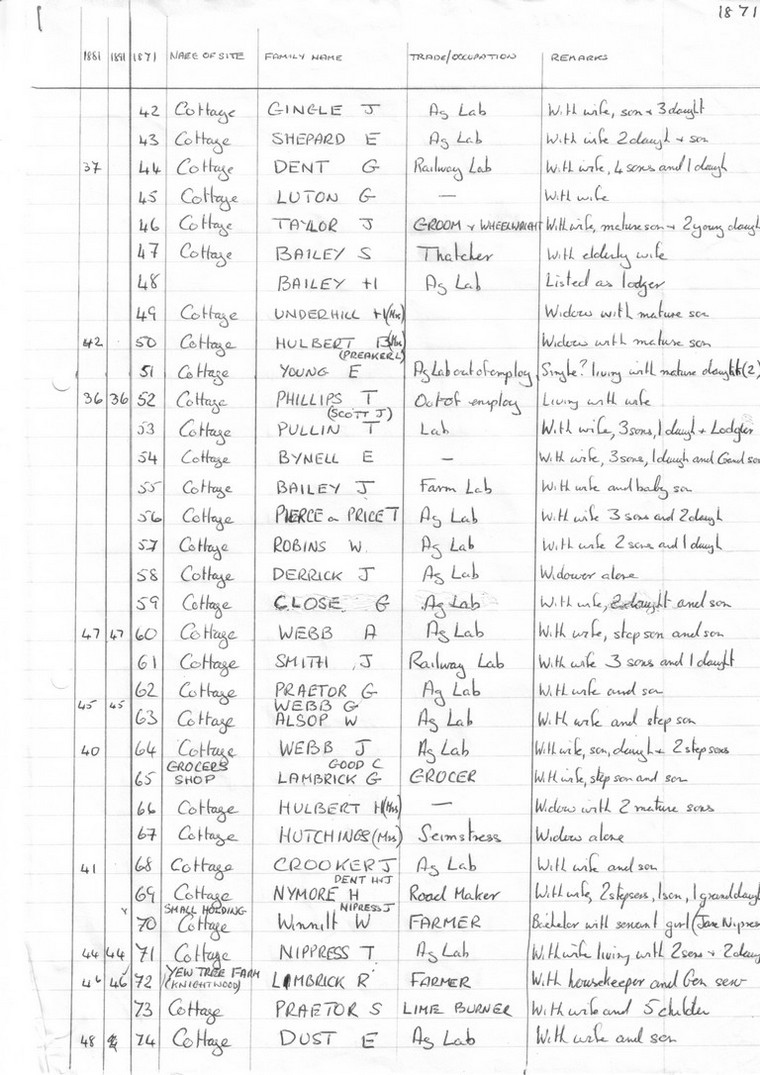 1871
1881 1891 1871 NAME OF SITE FAMILY NAME TRADE/OCCUPATION REMARKS
42 Cottage GINGLE J Ag Lab With wife, son + 3 daught
43 Cottage SHEPARD E Ag Lab With wife 2 daugh + son
37 44 Cottage DENT G Railway Lab With wife, 4 sons and 1 daugh
45 Cottage LUTON G — With wife
46 Cottage TAYLOR J GROOM + WHEELWRIGHT With wife, mature son + 2 young daugh
47 Cottage BAILEY S Thatcher With elderly wife
48 BAILEY H Ag Lab Listed as lodger
49 Cottage UNDERHILL H (Mrs) Widow with mature son
42 50 Cottage HULBERT B (Mrs) Widow with mature son
(PREAKER L)
51 Cottage YOUNG E Ag Lab out of employ. Single? living with mature daught (2)
36 36 52 Cottage PHILLIPS T Out of employ Living with wife
(SCOTT J)
53 Cottage PULLIN T Lab With wife, 3 sons, 1 daugh + Lodger
54 Cottage BYNELL E — With wife, 3 sons, 1 daugh and Gand son
55 Cottage BAILEY J Farm Lab With wife and baby son
56 Cottage PIERCE or PRICE T Ag Lab With wife 3 sons and 2 daugh
57 Cottage ROBINS W. Ag Lab With wife 2 sons and 1 daugh
58 Cottage DERRICK J Ag Lab Widower alone
59 Cottage CLOSE G Ag Lab With wife, 2 daught and son
47 47 60 Cottage WEBB A Ag Lab With wife, step son and son
61 Cottage SMITH J Railway Lab With wife 3 sons and 1 daught
62 Cottage PRAETOR G Ag Lab With wife and son
45 45 WEBB G
63 Cottage ALSOP W Ag Lab With wife and step son
40 64 Cottage WEBB J Ag Lab With wife, son, daugh + 2 step sons
GROCERS GOOD C
65 SHOP LAMBRICK G GROCER With wife, step son and son
66 Cottage HULBERT H (Mrs) — Widow with 2 mature sons
67 Cottage HUTCHINGS (Mrs) Seimstress Widow alone
41 68 Cottage CROOKER J Ag Lab With wife and son
DENT H+J
69 Cottage NYMORE H Road Maker With wife, 2 stepsons, 1 son, 1 granddaug
SMALL HOLDING NIPRESS J
70 Cottage Winnilt W FARMER Bachelor with servant girl (Jane Nipress
44 44 71 Cottage NIPPRESS T Ag Lab With wife living with 2 sons + 2 daug
YEW TREE FARM
46 46 72 (KNIGHTWOOD) LIMBRICK R FARMER With housekeeper and Gen serv
73 Cottage PRAETOR S LIME BURNER With wife and 5 childer
48 74 Cottage DUST E Ag Lab With wife and son